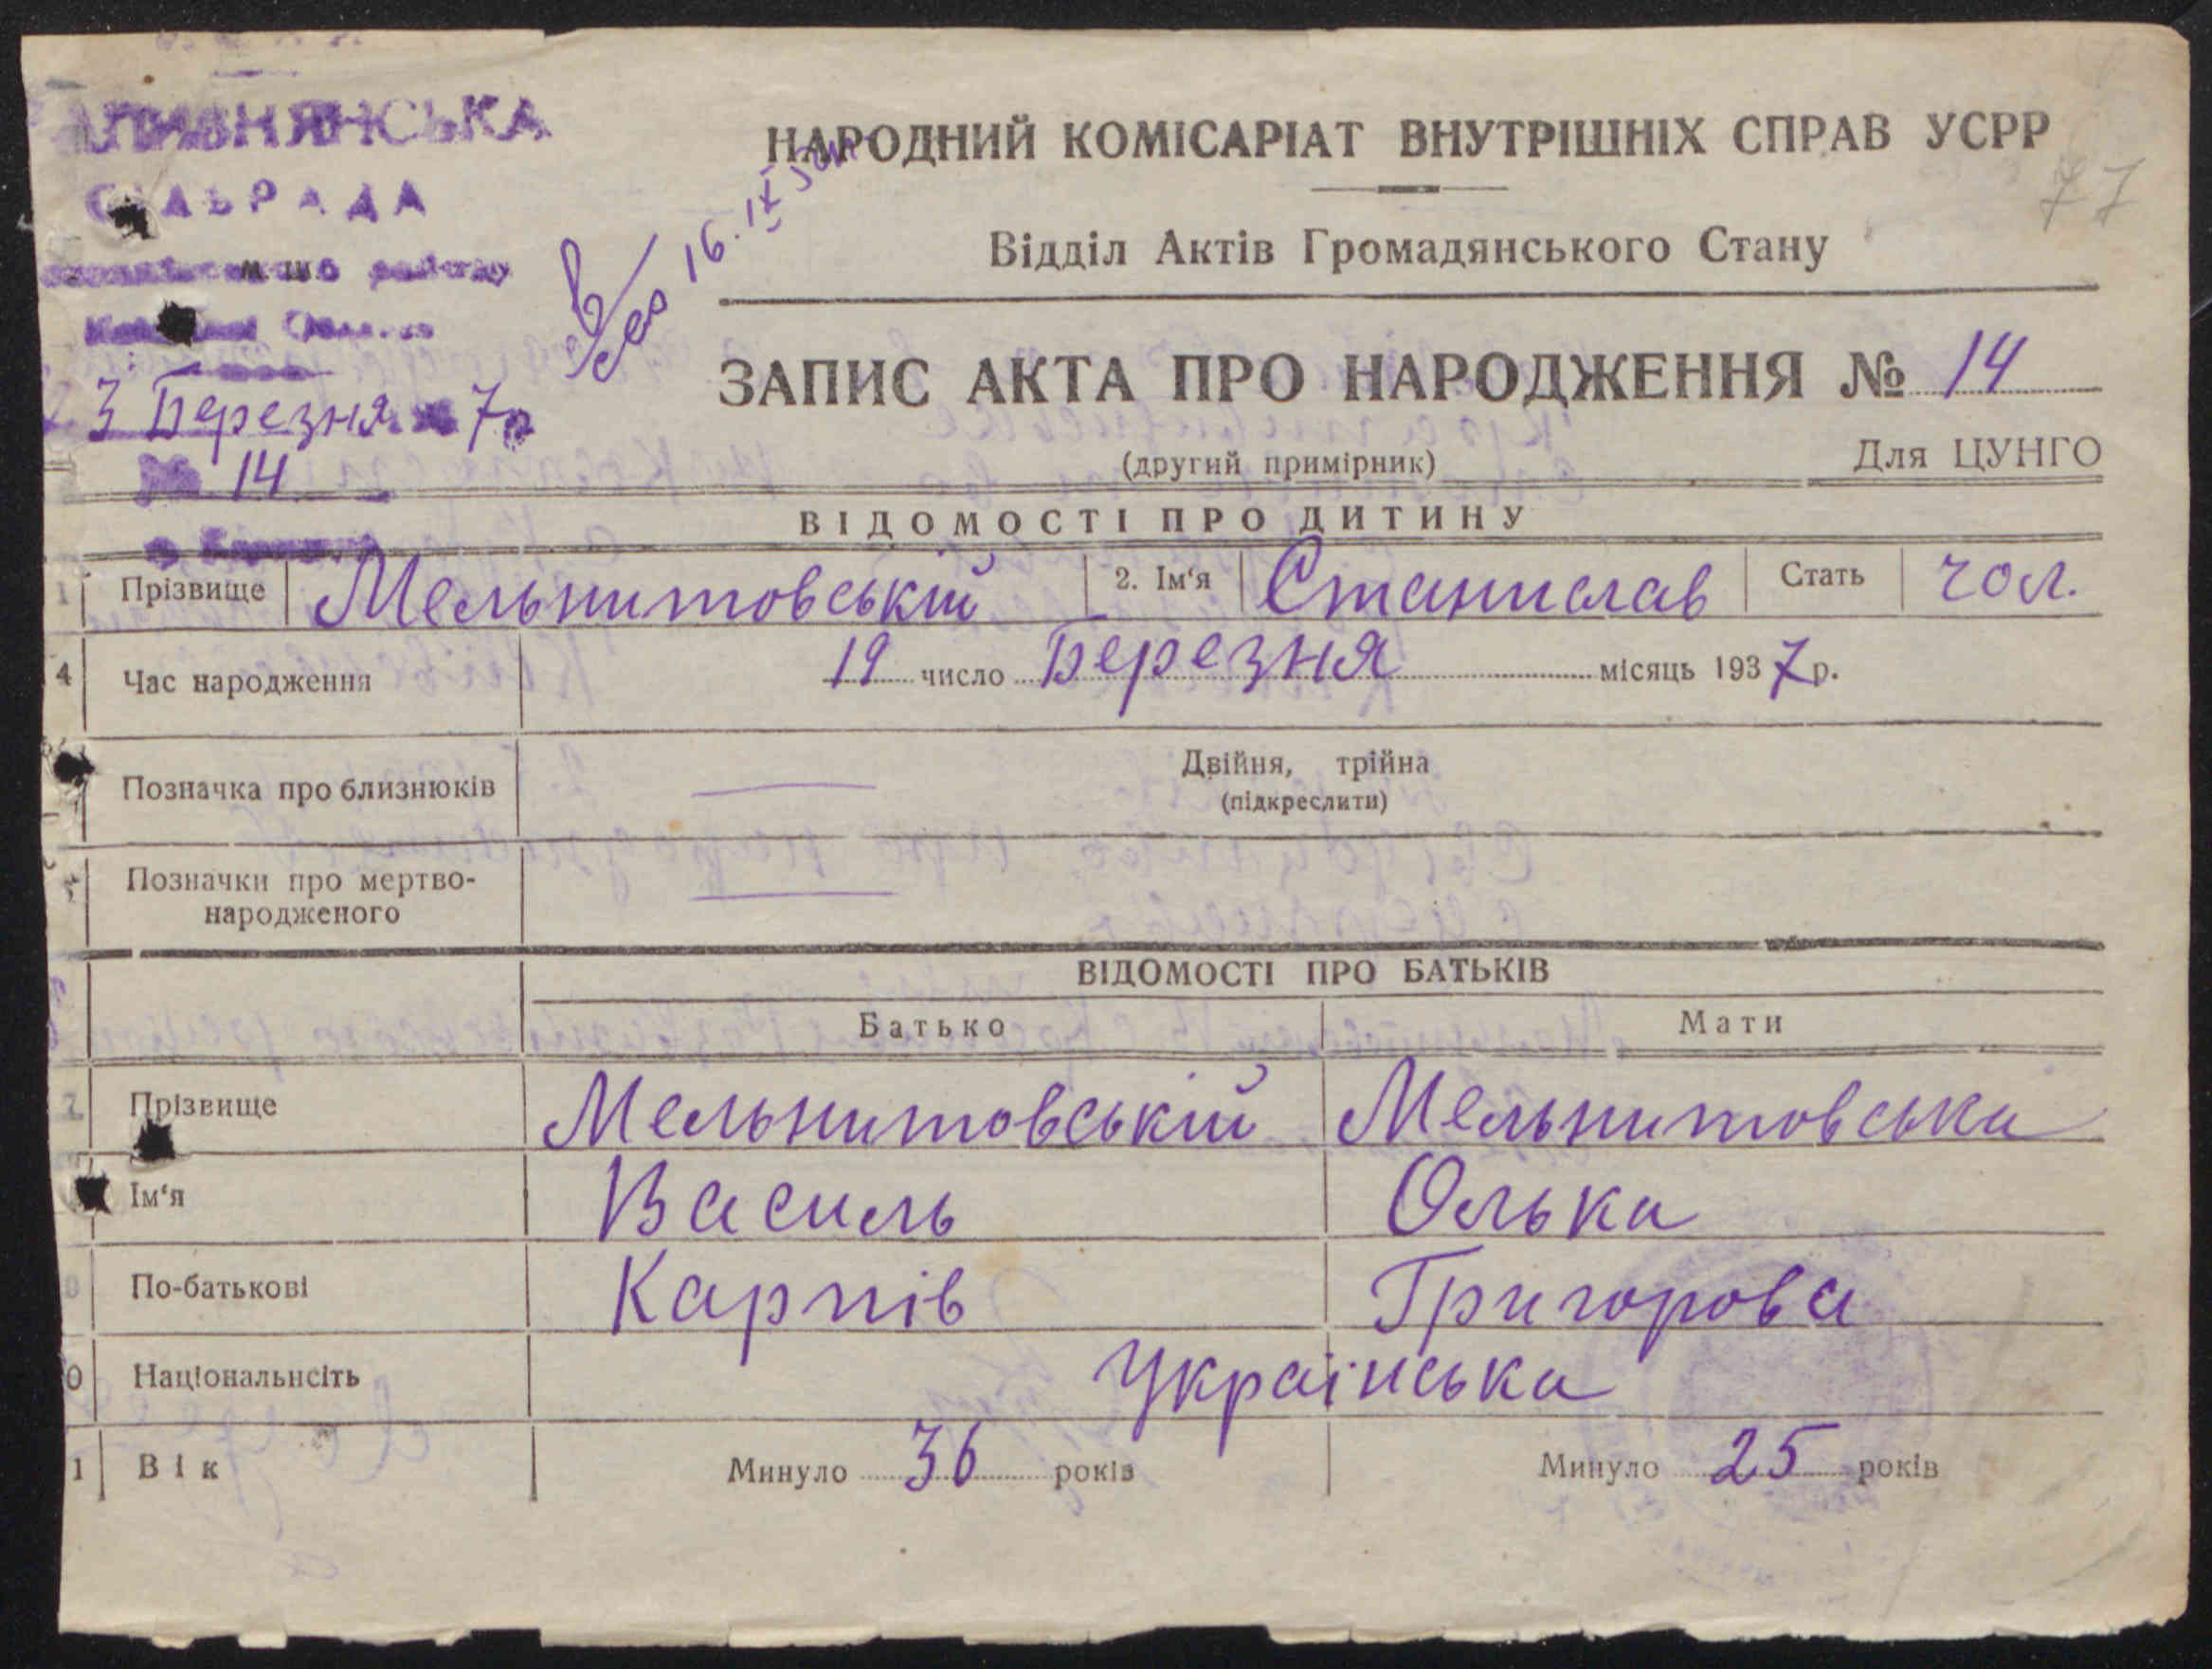 СІЛЬРАДА
3 Березня 7р
№ 14
16.IX
77
НАРОДНИЙ КОМІСАРІАТ ВНУТРІШНІХ СПРАВ УСРР
Відділ Актів Громадянського Стану
ЗАПИС АКТА ПРО НАРОДЖЕННЯ № 14
(другий примірник) Для ЦУНГО
ВІДОМОСТІ ПРО ДИТИНУ
1 Прізвище Мельнитовській 2. Ім‘я Станислав Стать чол.
4 Час народження 19 число Березня місяць 1937 р.
Позначка про близнюків — Двійня, трійна
(підкреслити)
Позначки про мертво-
народженого —
ВІДОМОСТІ ПРО БАТЬКІВ
Батько Мати
7 Прізвище Мельнитовській Мельнитовська
Ім‘я Василь Олька
9 По-батькові Карпів Григорова
0 Національнсіть Українська
1 Вік Минуло 36 років Минуло 25 років